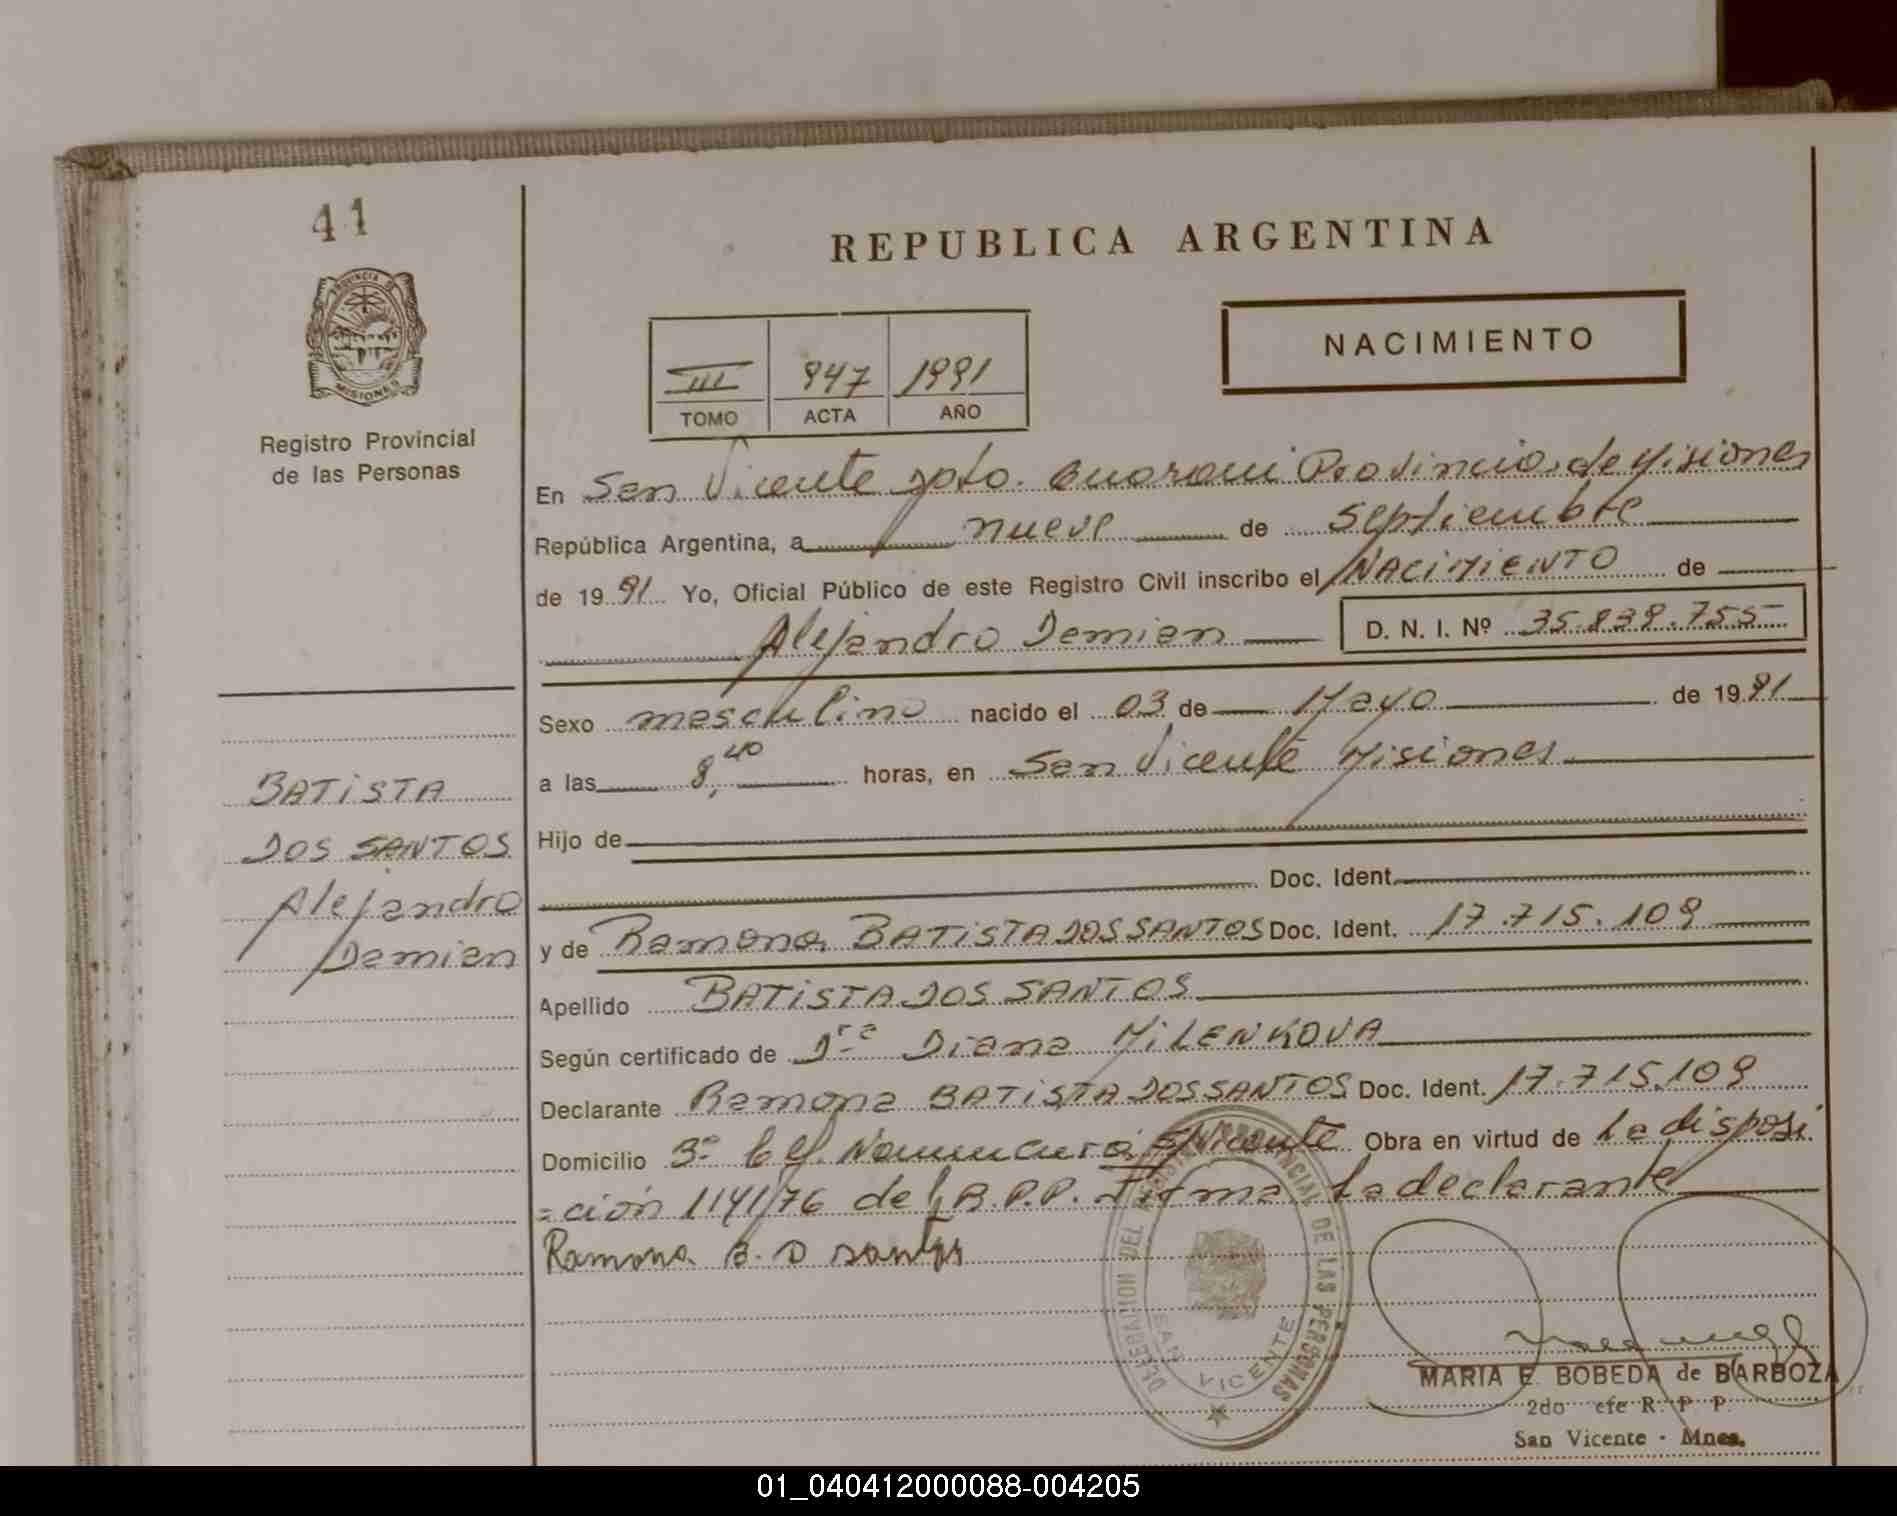 41
REPUBLICA ARGENTINA
PROVINCIA DE
MISIONES
NACIMIENTO
III 947 1991
TOMO ACTA AÑO
Registro Provincial
de las Personas
En San Vicente Dpto. Guarani Provincia de Misiones
República Argentina, a nueve de septiembre
de 1991 Yo, Oficial Público de este Registro Civil inscribo el NACIMIENTO de
Alejandro Demian D. N. I. Nº 35.839.755
Sexo masculino nacido el 03 de Mayo de 1991
a las 8,40 horas, en San Vicente Misiones
BATISTA
DOS SANTOS
Alejandro
Demian
Hijo de
Doc. Ident.
y de Ramona BATISTA DOS SANTOS Doc. Ident. 17.715.109
Apellido BATISTA DOS SANTOS
Según certificado de Dra Diana MILENKOVA
Declarante Ramona BATISTA DOS SANTOS Doc. Ident. 17.715.109
Domicilio Namuncurá S/Vicente Obra en virtud de La disposi
=ción 1141/76 del R.P.P. Firma La declarante
Ramona B. D santos
DELEGACION DEL REGISTRO PROVINCIAL DE LAS PERSONAS
SAN VICENTE
MARIA E. BOBEDA de BARBOZA
2do efe R. P. P.
San Vicente - Mnes.
01_040412000088-004205